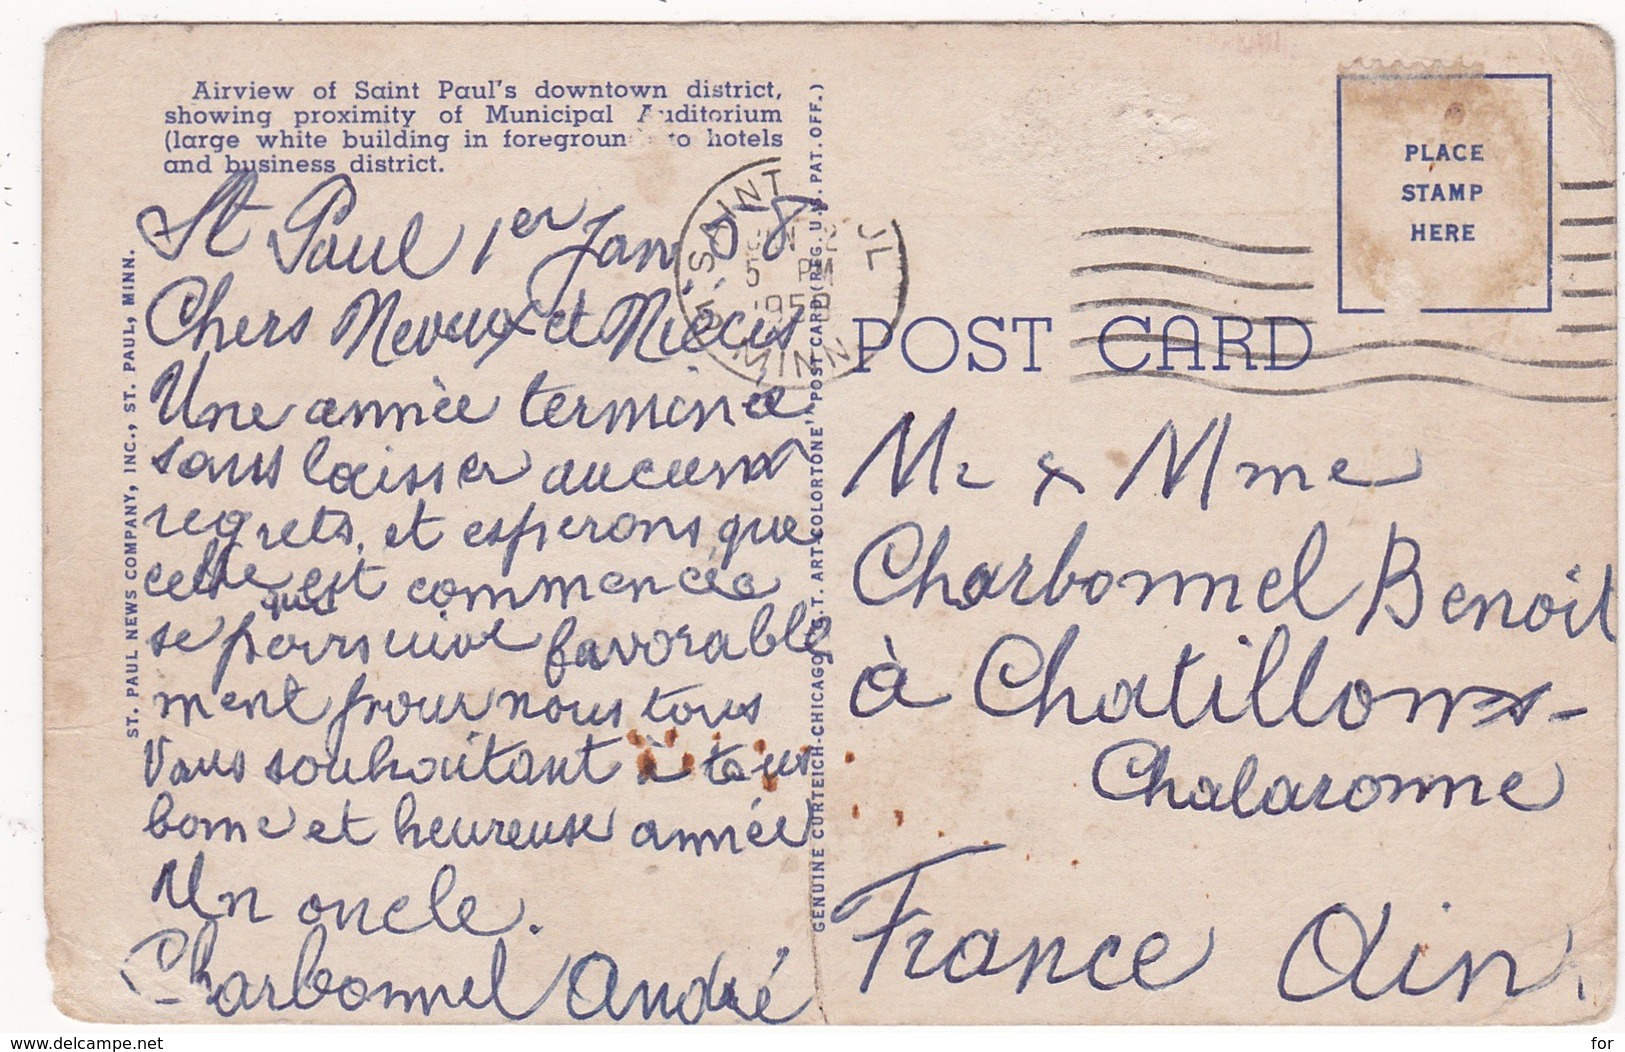 Airview of Saint Paul's downtown district,
showing proximity of Municipal Auditorium
(large white building in foregroun to hotels
and business district.
St Paul 1er Jan 58
Chers Neveux et Nièces
Une année terminée
sans laisser aucun
regrets, et esperons que
celle qui est commencée
se poursuive favorable
ment pour nous tous
Vous souhaitant à tous
bonne et heureuse année
Un oncle.
Charbonnel André
ST. PAUL NEWS COMPANY, INC., ST. PAUL, MINN.
GENUINE CURTEICH-CHICAGO "C.T. ART-COLORTONE" POST CARD (REG. U.S. PAT. OFF.)
SAINT PAUL
JAN 2
5 PM
1958
MINN
PLACE
STAMP
HERE
POST CARD
Mr & Mme
Charbonnel Benoit
à Chatillon s-
Chalaronne
France Ain.
delcampe.net
for